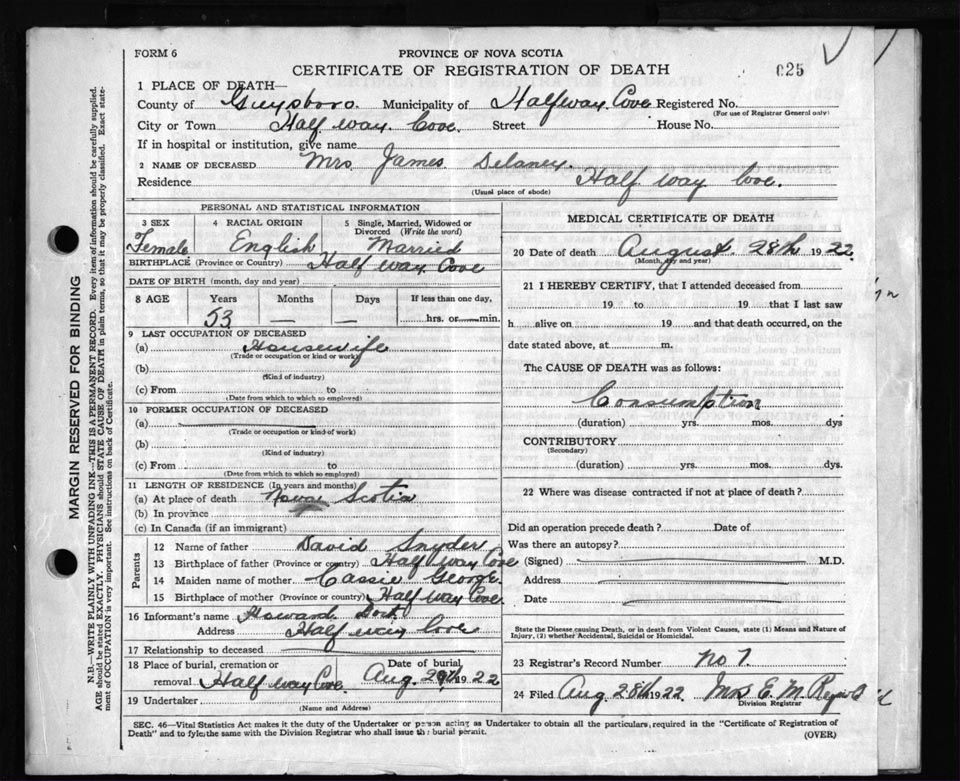 FORM 6
PROVINCE OF NOVA SCOTIA
CERTIFICATE OF REGISTRATION OF DEATH
025
1 PLACE OF DEATH—
County of Guysboro. Municipality of Halfway Cove Registered No.
(For use of Registrar General only)
City or Town Half way Cove. Street House No.
If in hospital or institution, give name
2 NAME OF DECEASED Mrs James Delaney.
Residence Half way Cove.
(Usual place of abode)
PERSONAL AND STATISTICAL INFORMATION
3 SEX Female
4 RACIAL ORIGIN English
5 Single, Married, Widowed or Divorced (Write the word) Married
BIRTHPLACE (Province or Country) Half way Cove
DATE OF BIRTH (month, day and year)
8 AGE Years Months Days If less than one day,
53 — — hrs. or min.
9 LAST OCCUPATION OF DECEASED
(a) Housewife
(Trade or occupation or kind or work)
(b)
(Kind of industry)
(c) From to
(Date from which to which so employed)
10 FORMER OCCUPATION OF DECEASED
(a)
(Trade or occupation or kind of work)
(b)
(Kind of industry)
(c) From to
(Date from which to which so employed)
11 LENGTH OF RESIDENCE (In years and months)
(a) At place of death Nova Scotia
(b) In province
(c) In Canada (if an immigrant)
Parents
12 Name of father David Snyder
13 Birthplace of father (Province or country) Half way Cove
14 Maiden name of mother Cassie George.
15 Birthplace of mother (Province or country) Half way Cove.
16 Informant's name Howard
Address Half way Cove
17 Relationship to deceased
18 Place of burial, cremation or removal Half way Cove.
Date of burial Aug. 29th 1922
19 Undertaker
(Name and Address)
MEDICAL CERTIFICATE OF DEATH
20 Date of death August 28th 1922
(Month, day and year)
21 I HEREBY CERTIFY, that I attended deceased from
19 to 19 that I last saw
h alive on 19 and that death occurred, on the
date stated above, at m.
The CAUSE OF DEATH was as follows:
Consumption
(duration) yrs. mos. dys
CONTRIBUTORY
(Secondary)
(duration) yrs. mos. dys.
22 Where was disease contracted if not at place of death?
Did an operation precede death? Date of
Was there an autopsy?
(Signed) M.D.
Address
Date
State the Disease causing Death, or in death from Violent Causes, state (1) Means and Nature of
Injury, (2) whether Accidental, Suicidal or Homicidal.
23 Registrar's Record Number No 7.
24 Filed Aug 28th 1922 Mrs E. M.
Division Registrar
SEC. 46—Vital Statistics Act makes it the duty of the Undertaker or person acting as Undertaker to obtain all the particulars required in the "Certificate of Registration of
Death" and to fyle the same with the Division Registrar who shall issue the burial permit.
(OVER)
MARGIN RESERVED FOR BINDING
N.B.—WRITE PLAINLY WITH UNFADING INK—THIS IS A PERMANENT RECORD. Every item of information should be carefully supplied.
AGE should be stated EXACTLY. PHYSICIANS should STATE CAUSE OF DEATH in plain terms, so that it may be properly classified. Exact state-
ment of OCCUPATION is very important. See instructions on back of Certificate.